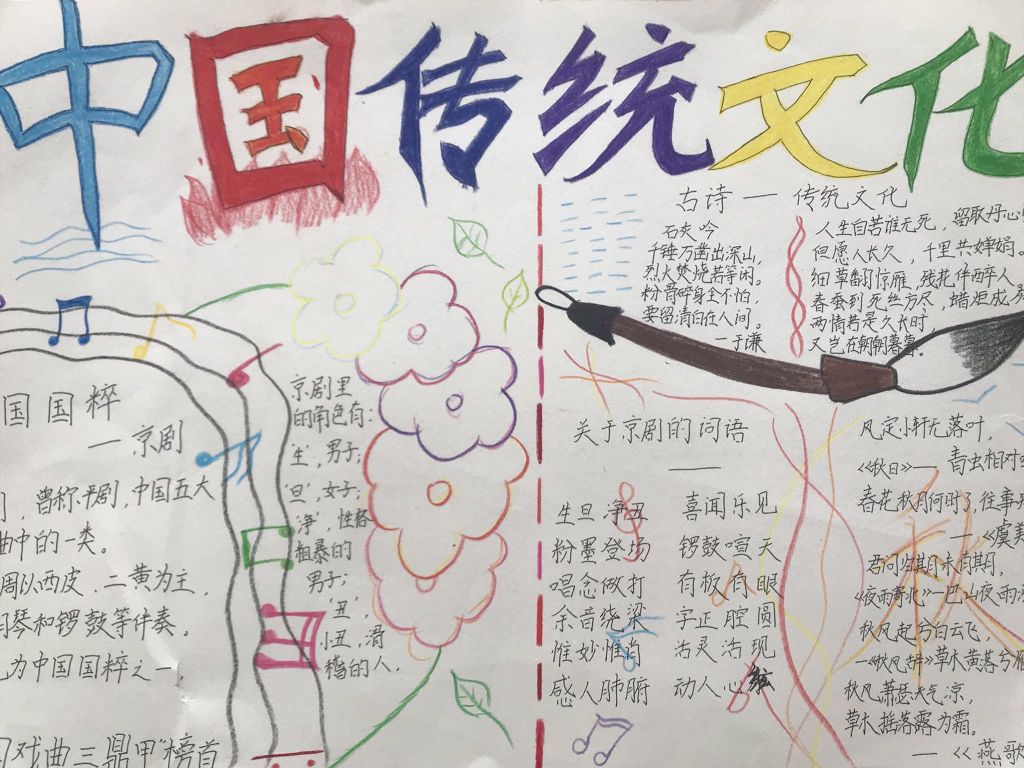 中国传统文化
国国粹
— 京剧
曾称平剧,中国五大
曲中的一类。
调以西皮、二黄为主,
胡琴和锣鼓等伴奏。
为中国国粹之一,
戏曲三鼎甲"榜首
京剧里
的角色有:
'生',男子;
'旦',女子;
'净',性格
粗暴的
男子;
'丑',
小丑,滑
稽的人.
古诗 — 传统文化
石灰吟
千锤万凿出深山,
烈火焚烧若等闲。
粉骨碎身全不怕,
要留清白在人间。
—于谦
人生自古谁无死,留取丹心
但愿人长久,千里共婵娟。
细草翻惊雁,残花伴醉人
春蚕到死丝方尽,蜡炬成
两情若是久长时,
又岂在朝朝暮暮。
关于京剧的词语
——
生旦净丑 喜闻乐见
粉墨登场 锣鼓喧天
唱念做打 有板有眼
余音绕梁 字正腔圆
惟妙惟肖 活灵活现
感人肺腑 动人心弦
风定小轩无落叶,
《秋日》— 青虫相对
春花秋月何时了,往事
—《虞美
君问归期未有期,
《夜雨寄北》—巴山夜雨
秋风起兮白云飞,
—《秋风辞》草木黄落兮雁
秋风萧瑟天气凉,
草木摇落露为霜。
— 《燕歌
秋